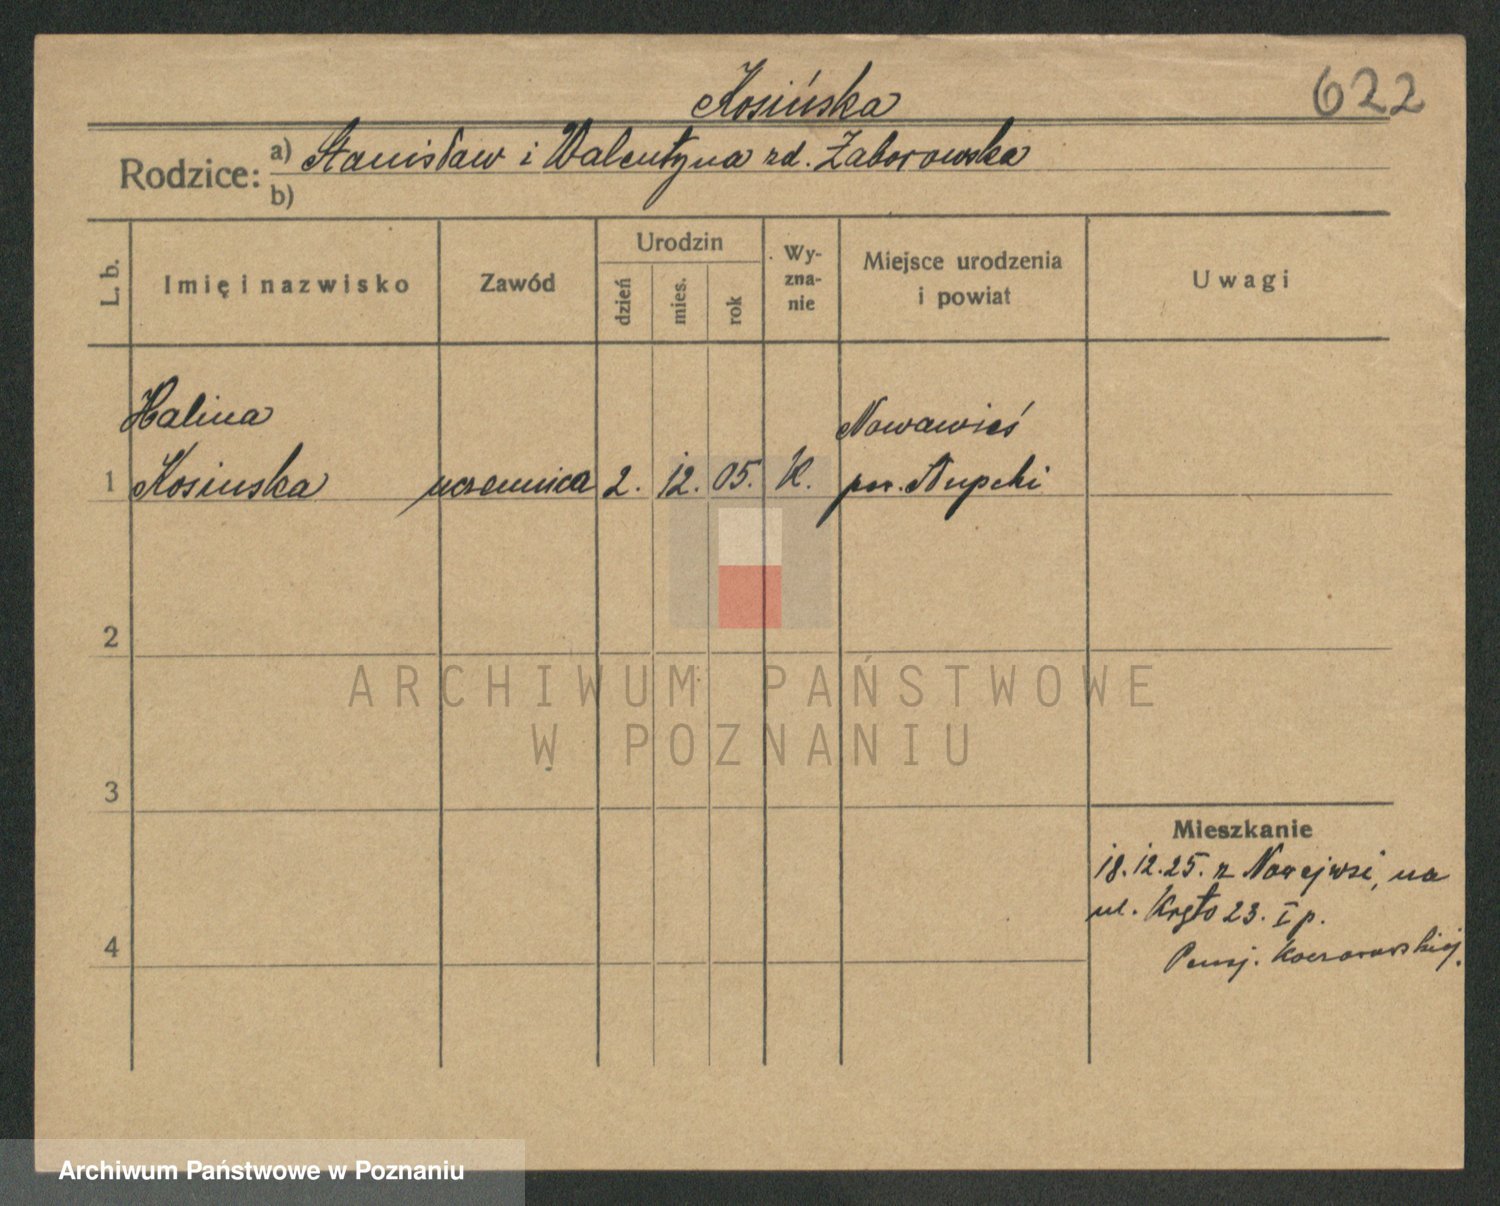 Kosińska
622
Rodzice: a) Stanisław i Walentyna zd. Zaborowska
b)
L. b.
Imię i nazwisko
Zawód
Urodzin
dzień
mies.
rok
Wy-
zna-
nie
Miejsce urodzenia
i powiat
Uwagi
Halina
Nowawieś
1 Kosinska uczennica 2. 12. 05. K. pow. Słupcki
2
3
4
Mieszkanie
18.12.25. z Nowejwsi, na
ul. 23. I p.
Pensj.
ARCHIWUM PAŃSTWOWE
W POZNANIU
Archiwum Państwowe w Poznaniu